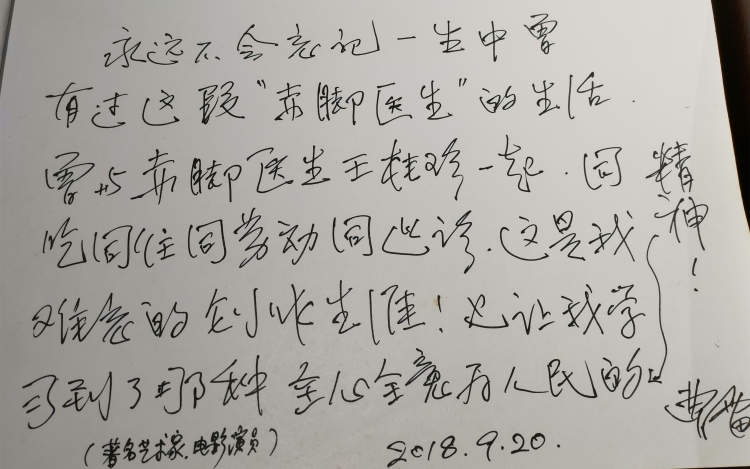 永远不会忘记一生中曾
有过这段“赤脚医生”的生活.
曾与赤脚医生王桂珍一起.同
吃同住同劳动同出诊.这是我
难忘的创作生涯！也让我学
习到了那种全心全意为人民的
精神！
(著名艺术家.电影演员)
2018.9.20.